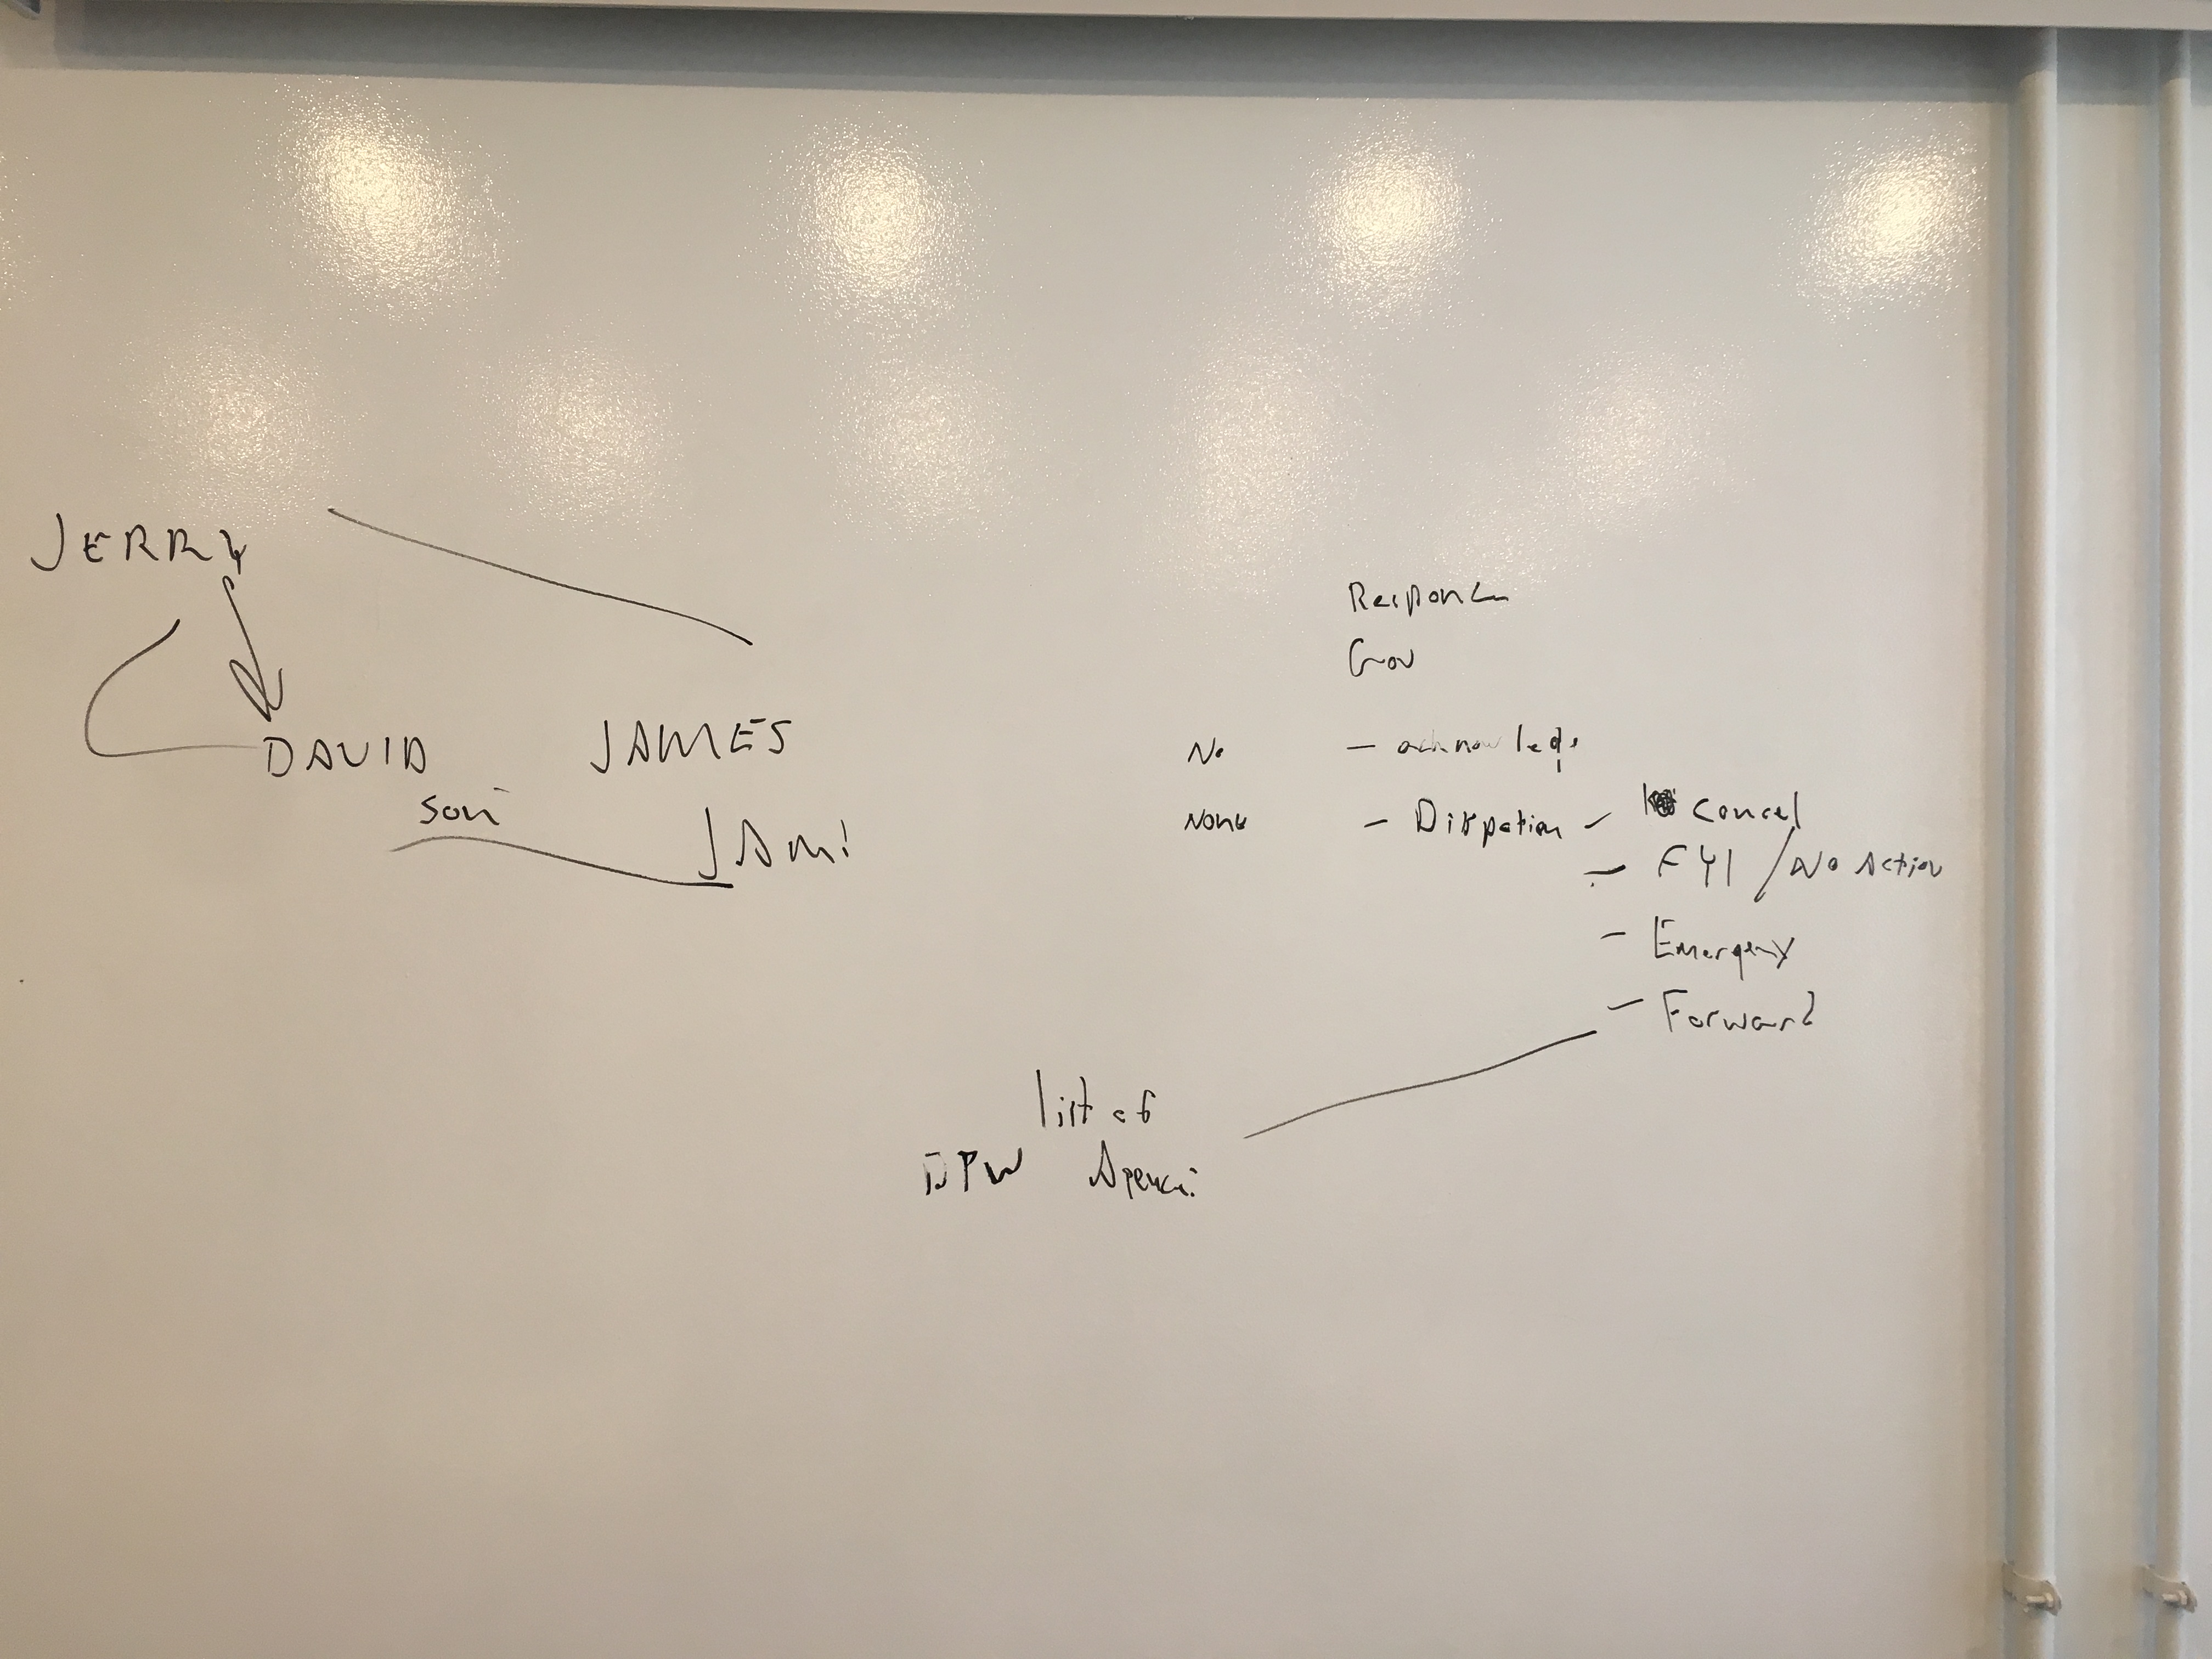 JERRY
DAVID
JAMES
son
JAmi
Response
Gov
No - acknowledge
None - Dispation - Cancel
- FYI / No Action
- Emergency
- Forward
list of
DPW Agenci